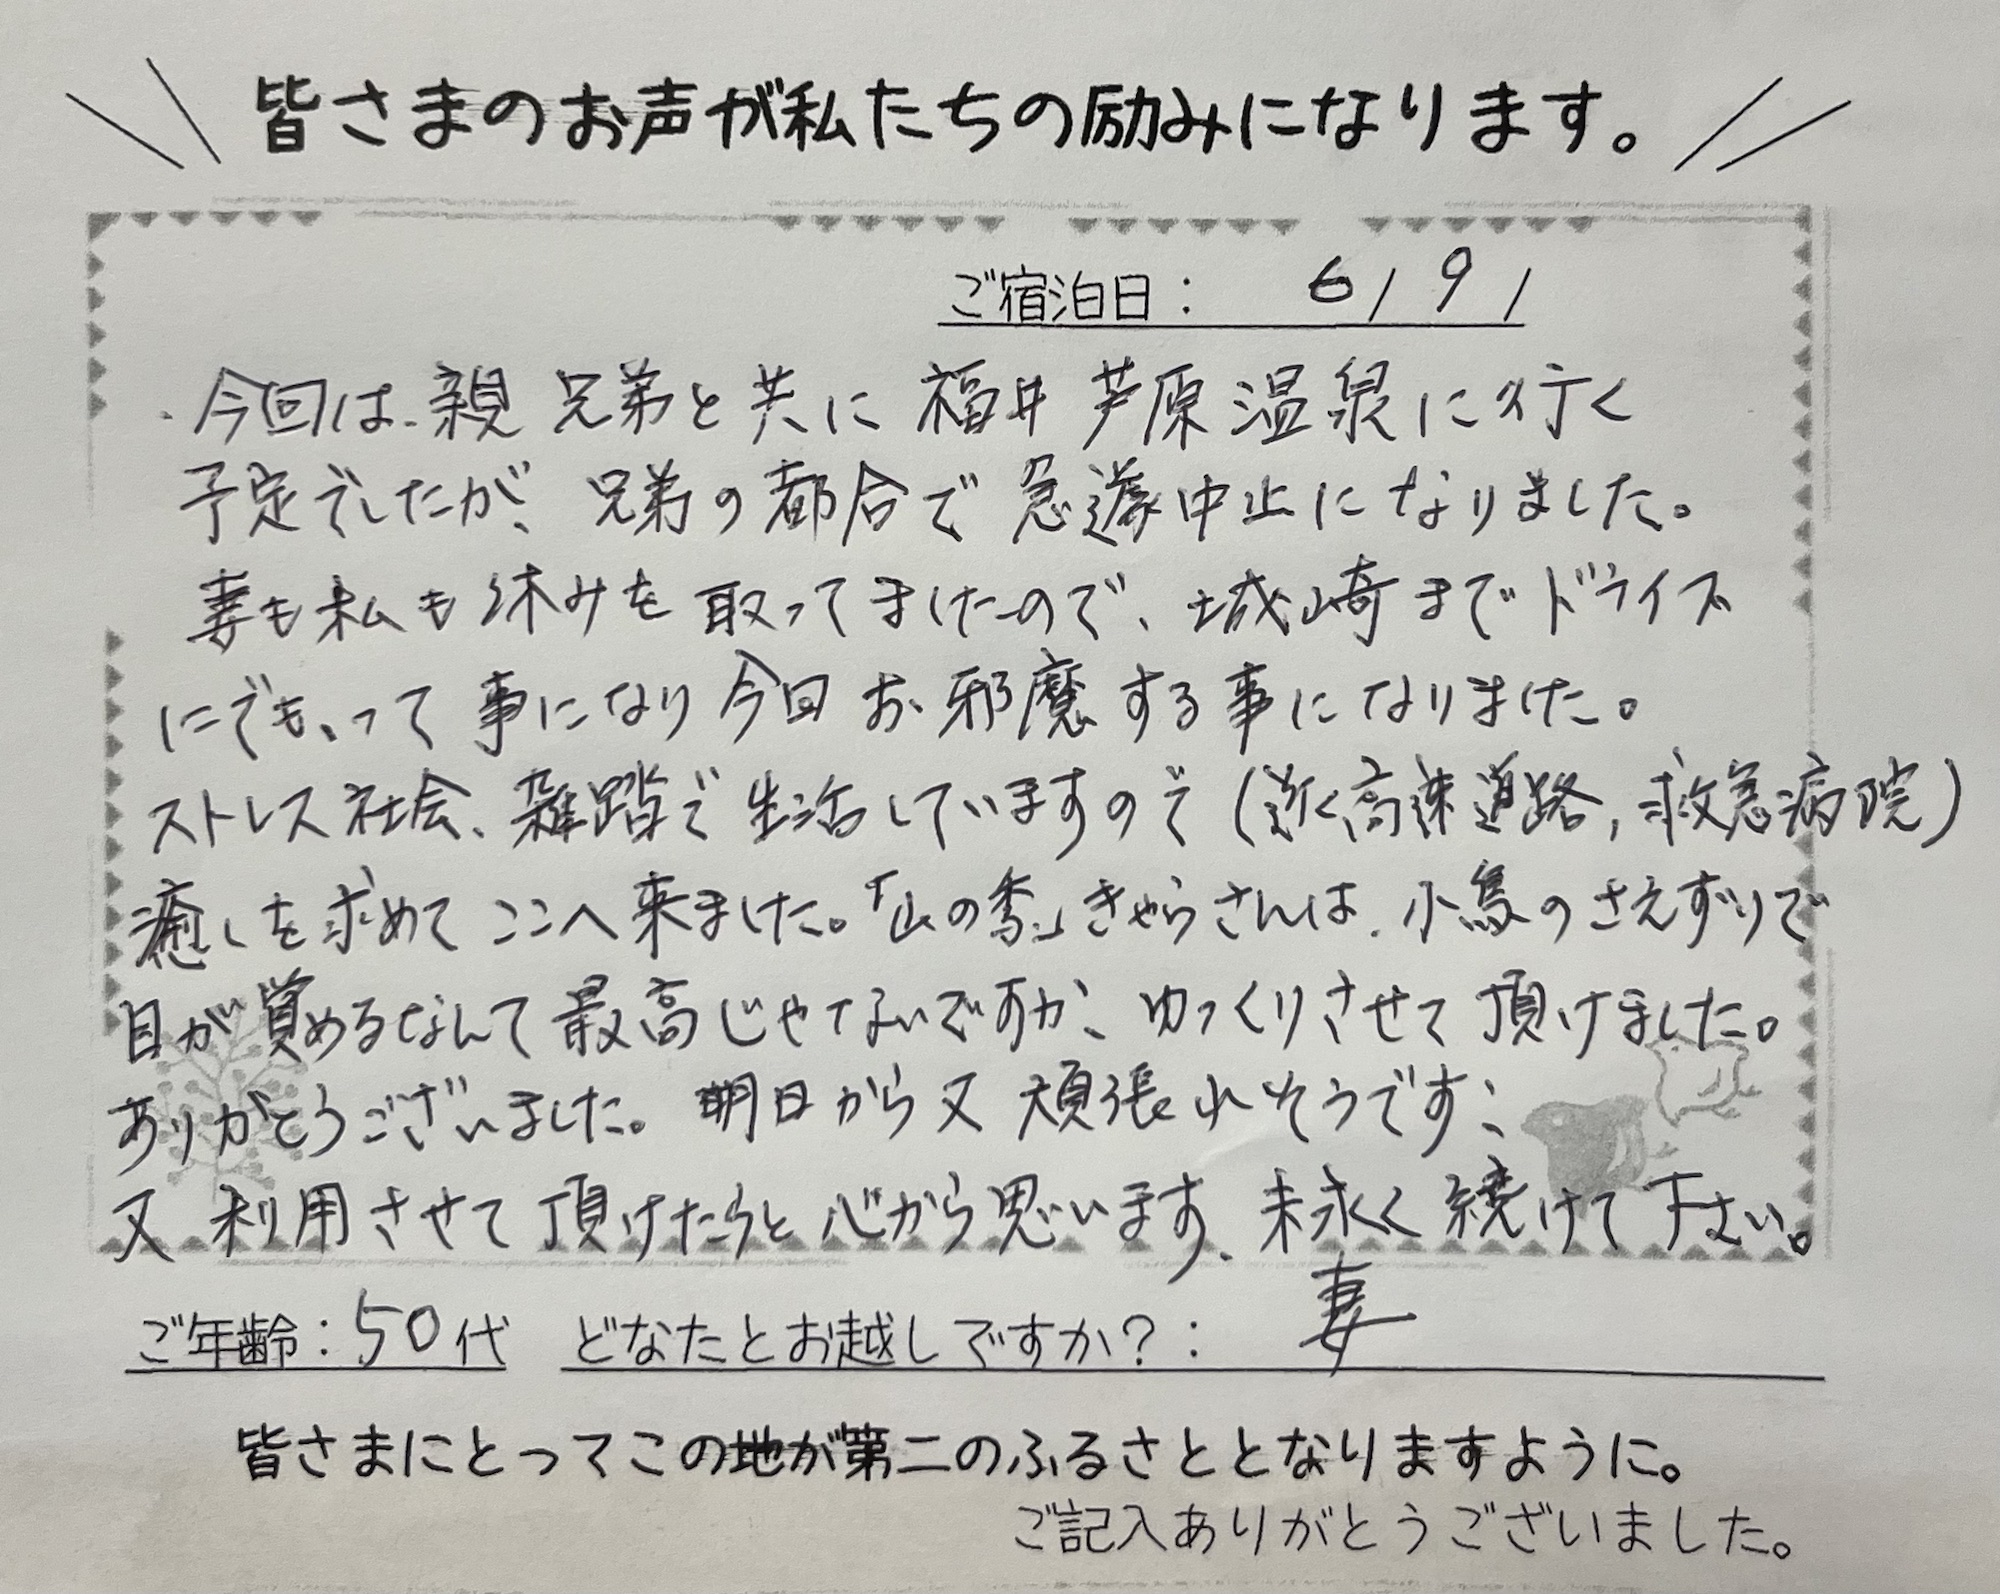 皆さまのお声が私たちの励みになります。
ご宿泊日： 6/9/
今回は、親 兄弟と共に 福井 芦原温泉に行く
予定でしたが、兄弟の都合で 急遽中止になりました。
妻も私も休みを取ってましたので、城崎までドライブ
にでもって事になり今回お邪魔する事になりました。
ストレス社会、雑踏で生活していますので（近く高速道路，救急病院）
癒しを求めてここへ来ました。「山の香」きゃらさんは、小鳥のさえずりで
目が覚めるなんて最高じゃないですか、ゆっくりさせて頂けました。
ありがとうございました。明日から又頑張れそうです；
又 利用させて頂けたらと心から思います、末永く続けて下さい。
ご年齢：50代 どなたとお越しですか？： 妻
皆さまにとってこの地が第二のふるさととなりますように。
ご記入ありがとうございました。